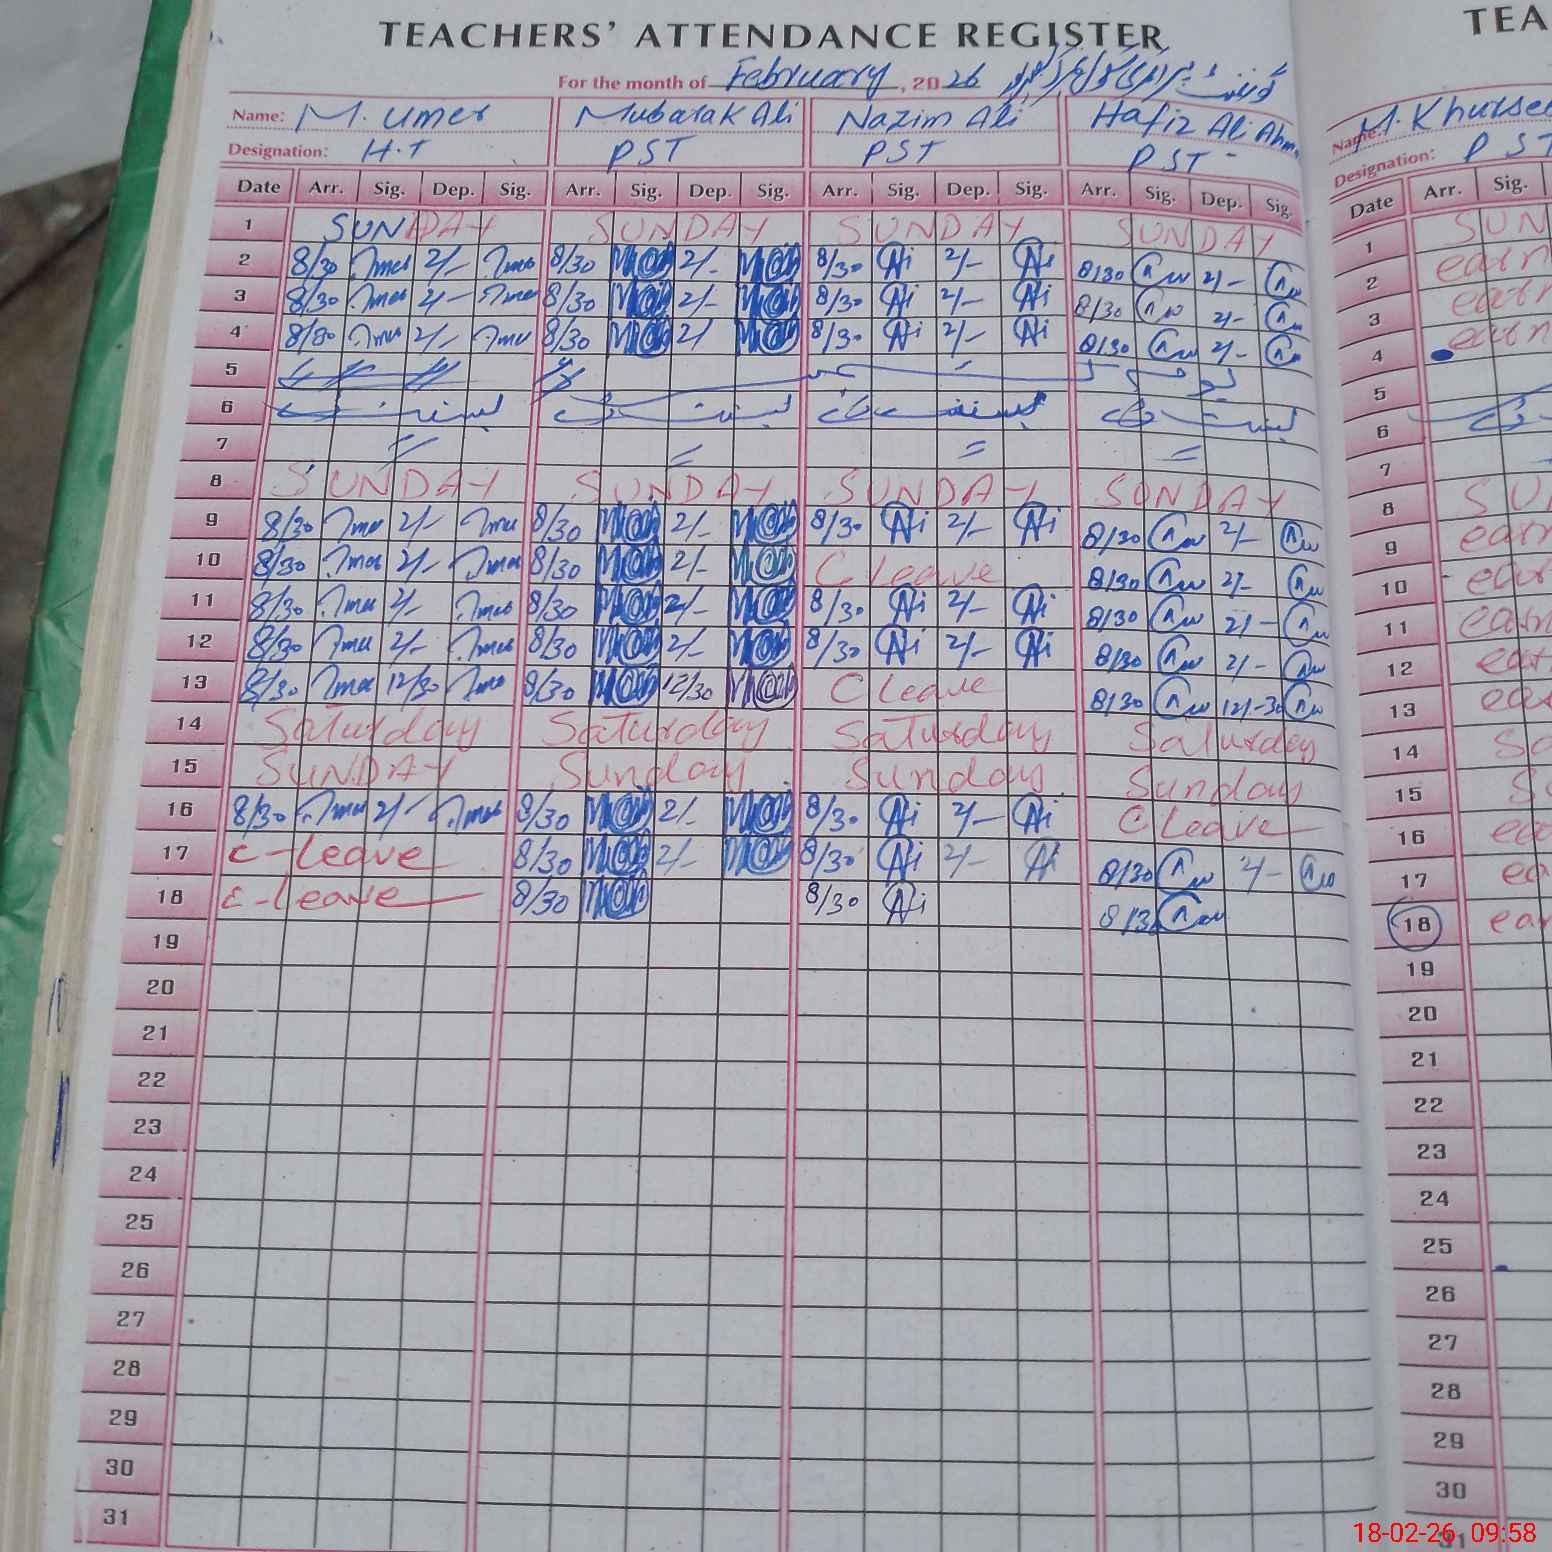 TEACHERS' ATTENDANCE REGISTER
TEA
For the month of February, 2026
Name: M. Umer Mubarak Ali Nazim Ali Hafiz Ali Ahm
Name: M. Khurs
Designation: H.T PST PST PST
Designation: PST
Date Arr. Sig. Dep. Sig. Arr. Sig. Dep. Sig. Arr. Sig. Dep. Sig. Arr. Sig. Dep. Sig.
Date Arr. Sig.
1 SUNDAY SUNDAY SUNDAY SUNDAY 1 SUN
2 8/30 Umer 2/- Umer 8/30 2/- 8/30 Ali 2/- Ali 8/30 2/- 2 earn
3 8/30 Umer 2/- Umer 8/30 2/- 8/30 Ali 2/- Ali 8/30 2/- 3 earn
4 8/30 Umer 2/- Umer 8/30 2/ 8/30 Ali 2/- Ali 8/30 2/- 4 earn
5 5
6 6
7 〃 〃 〃 〃 7
8 SUNDAY SUNDAY SUNDAY SUNDAY 8 SU
9 8/30 Umer 2/- Umer 8/30 2/- 8/30 Ali 2/- Ali 8/30 2/- 9 earn
10 8/30 Umer 2/- Umer 8/30 2/- C Leave 8/30 2/- 10 ear
11 8/30 Umer 2/- Umer 8/30 2/- 8/30 Ali 2/- Ali 8/30 2/- 11 earn
12 8/30 Umer 2/- Umer 8/30 2/- 8/30 Ali 2/- Ali 8/30 2/- 12 ear
13 8/30 Umer 12/30 Umer 8/30 12/30 C Leave 8/30 12/-30 13 ear
14 Saturday Saturday Saturday Saturday 14 Sa
15 SUNDAY Sunday Sunday Sunday 15 Su
16 8/30 Umer 2/- Umer 8/30 2/- 8/30 Ali 2/- Ali C Leave 16 ea
17 C-Leave 8/30 2/- 8/30 Ali 2/- Ali 8/30 2/- 17 ea
18 C-Leave 8/30 8/30 Ali 8/30 18 ear
19 19
20 20
21 21
22 22
23 23
24 24
25 25
26 26
27 27
28 28
29 29
30 30
31 31
18-02-26 09:58